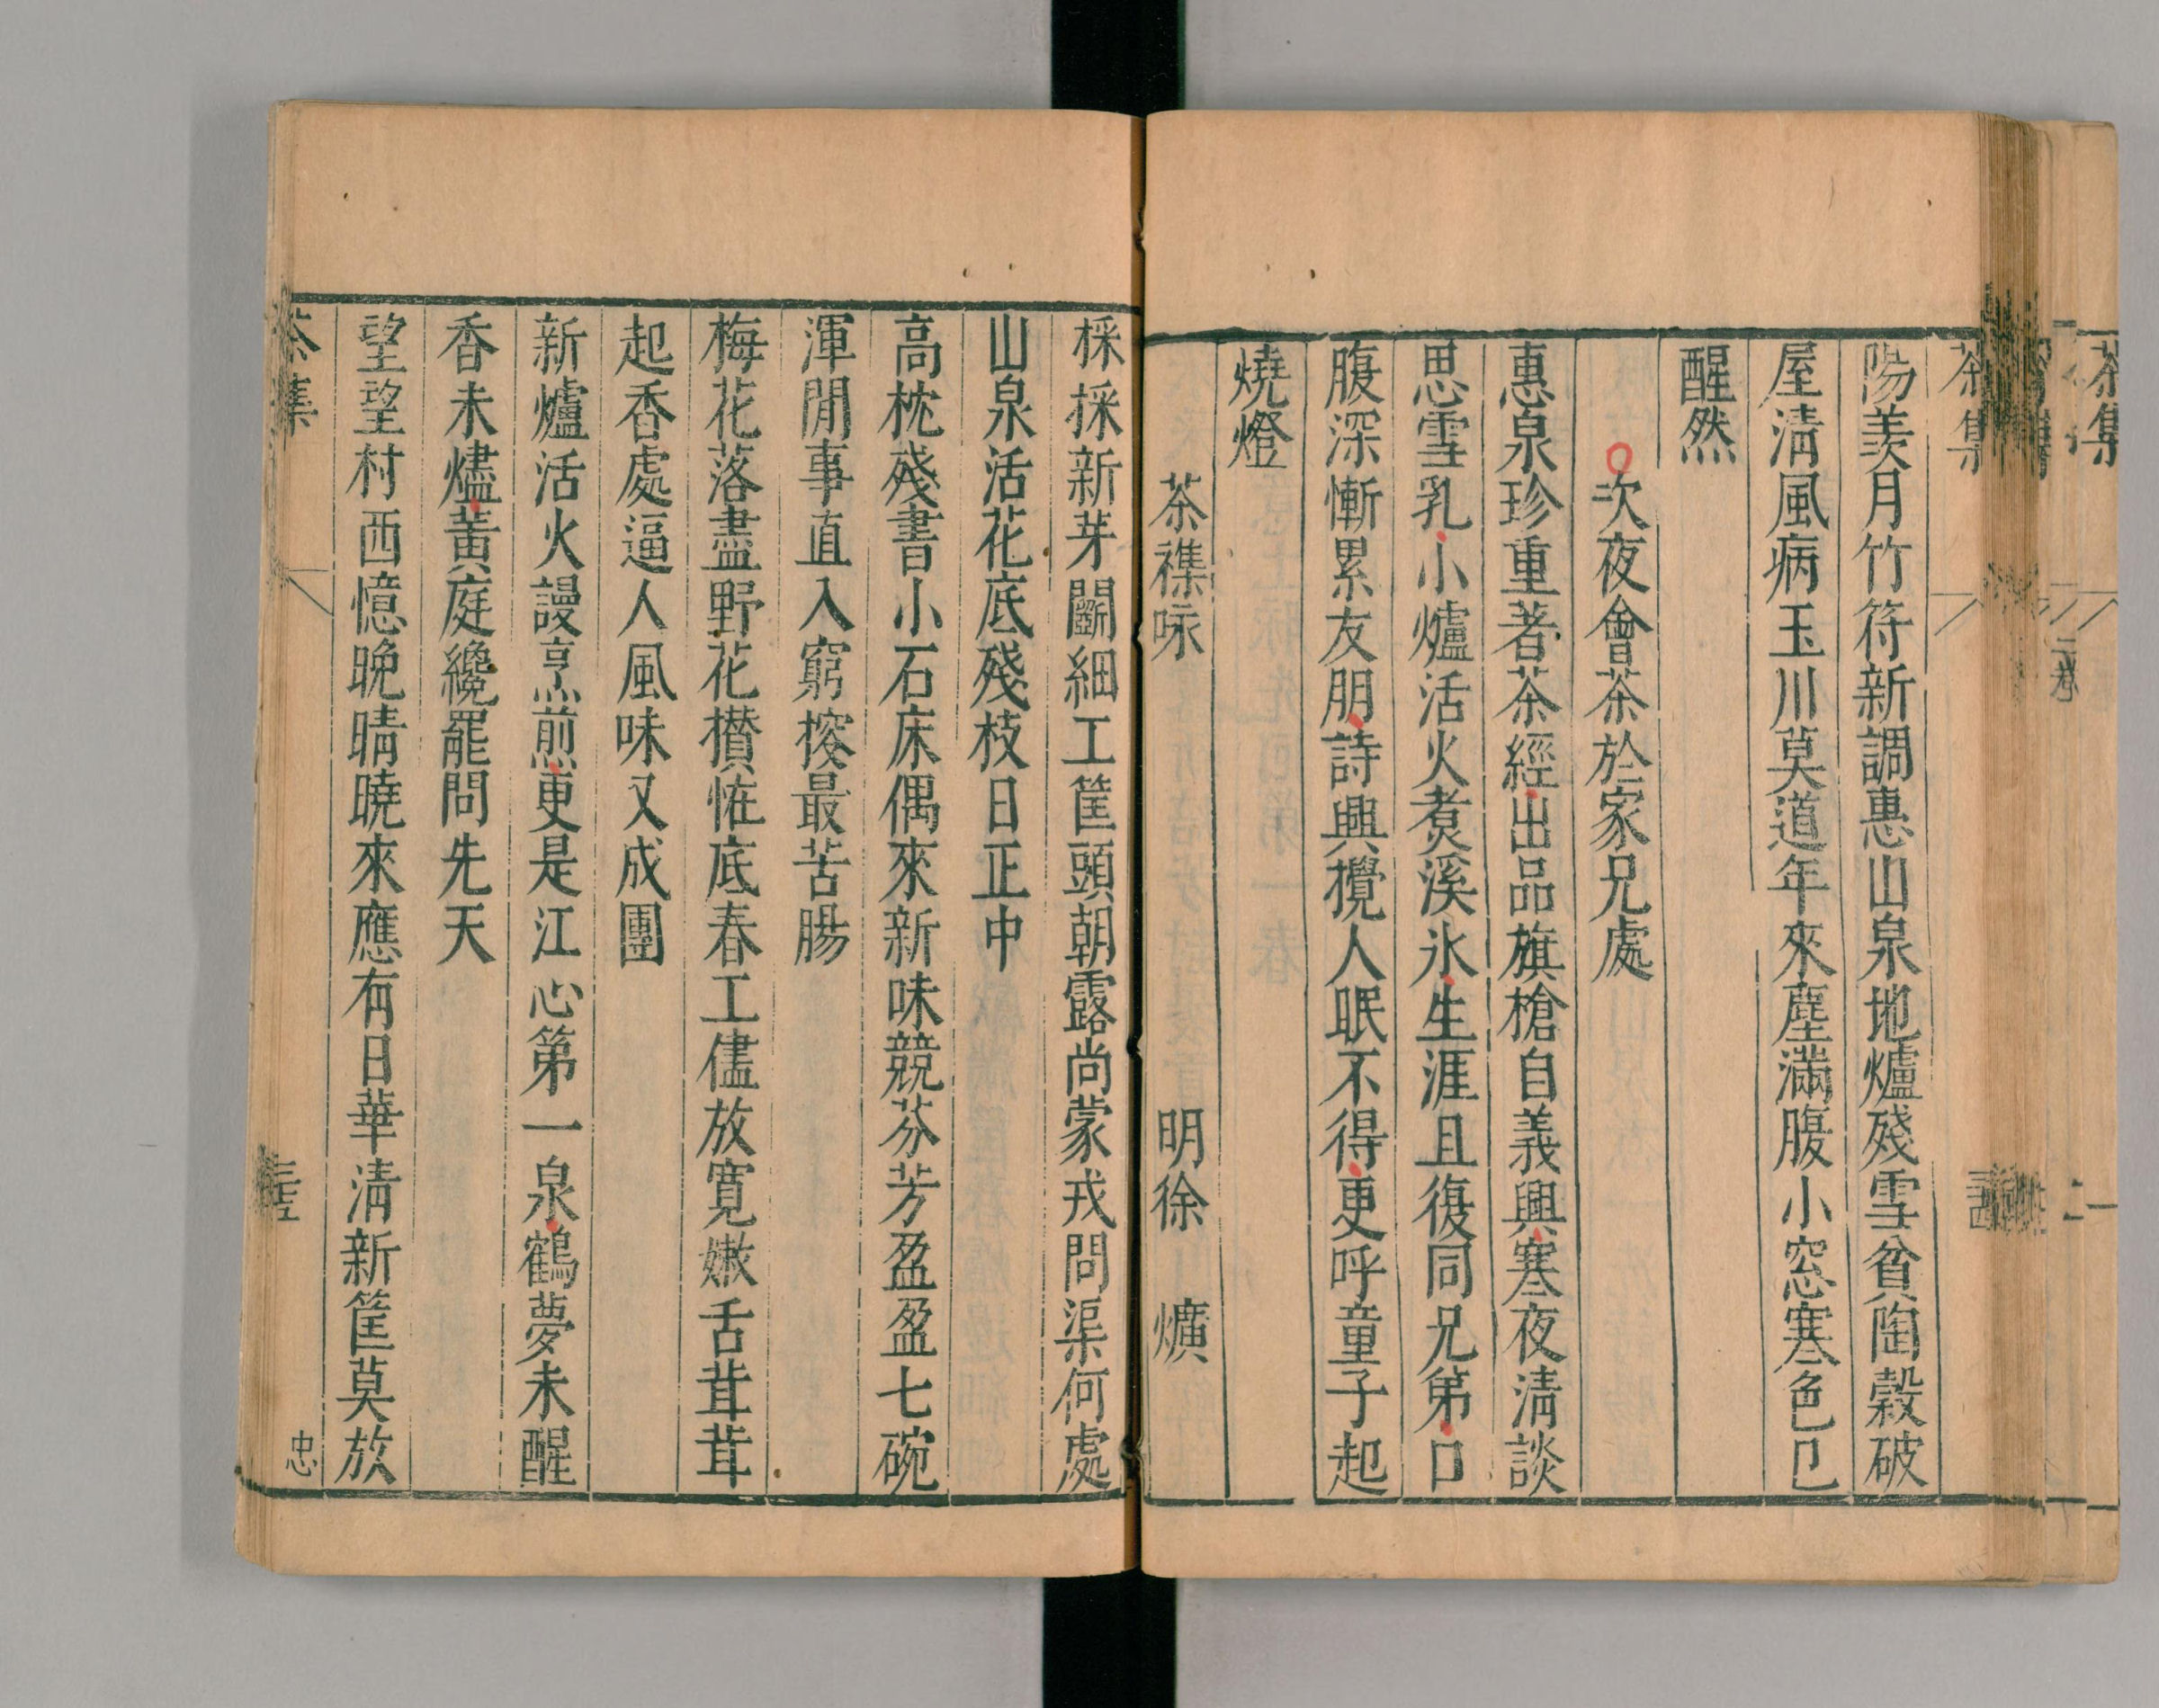 茶集
二
茶集
陽羨月竹符新調惠山泉地爐殘雪貧陶穀破
屋清風病玉川莫道年來塵滿腹小窓寒色已
醒然
次夜會茶於家兄處
惠泉珍重著茶經出品旗槍自義興寒夜清談
思雪乳小爐活火煑溪氷生涯且復同兄弟口
腹深慚累友朋詩興攪人眠不得更呼童子起
燒燈
茶襍咏 明徐 爌
採採新芽鬬細工筐頭朝露尚蒙戎問渠何處
山泉活花底殘枝日正中
高枕殘書小石床偶來新味競芬芳盈盈七碗
渾閒事直入窮搜最苦腸
梅花落盡野花攅恠底春工儘放寛嫩舌茸茸
起香處逼人風味又成團
新爐活火謾烹煎更是江心第一泉鶴夢未醒
香未燼黃庭纔罷問先天
望望村西憶晚晴曉來應有日華清新筐莫放
茶集
忠